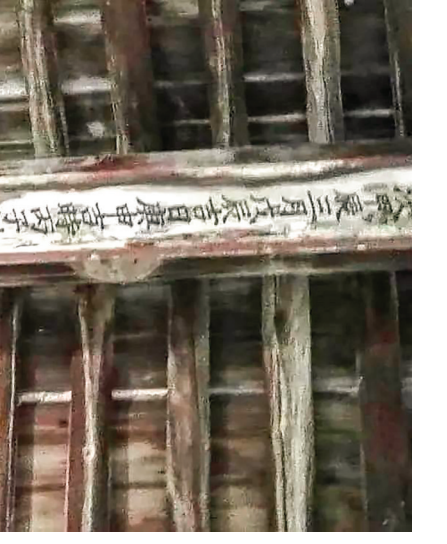 次甲辰三月戊辰吉日庚申吉時丙子